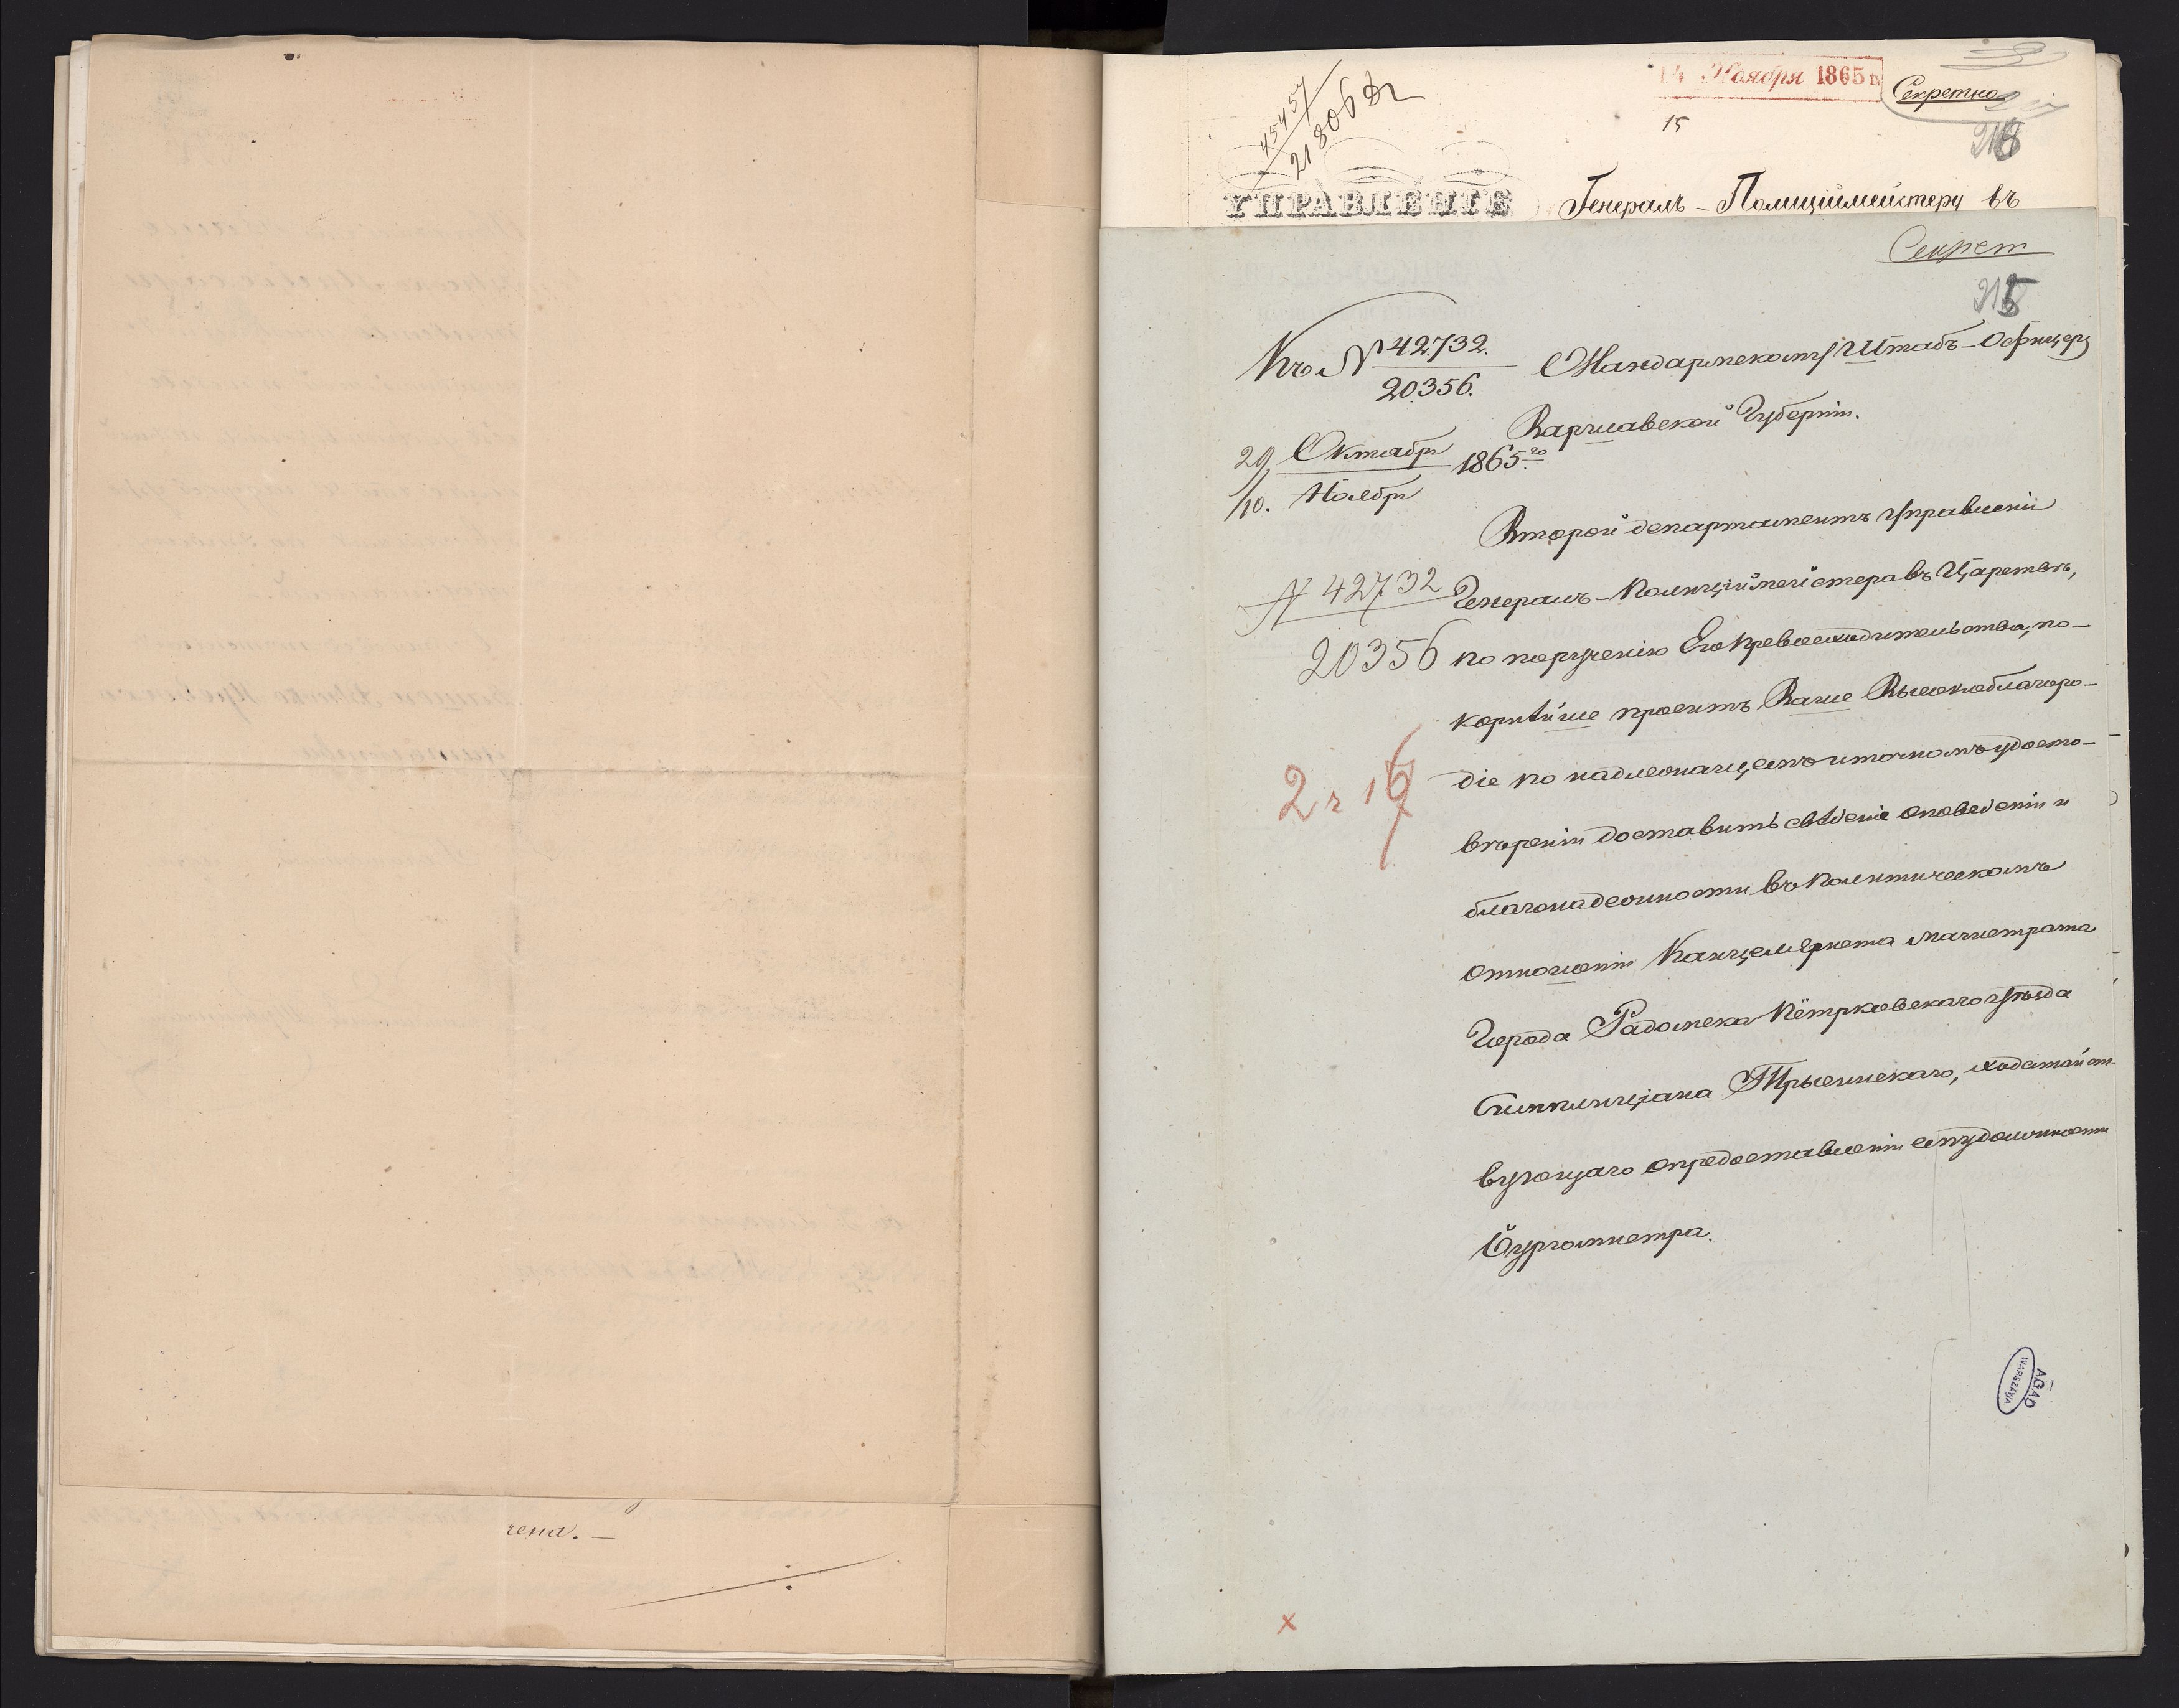 чена. —
45457
21806
14 Ноября 1865 г.
15
Секретно
УПРАВЛЕНІЕ
Генералъ-Полиціймейстеру въ
Секрет
Къ № 42732.
20356.
Жандармскому Штабъ-Офицеру
Варшавской Губерніи.
29 Октября
10. Ноября
1865го
Второй департаментъ Управленія
№ 42732
20356
Генералъ-Полиціймейстера въ Царствѣ,
по порученію Его Превосходительства, по-
корнѣйше проситъ Ваше Высокоблагоро-
діе по надлежащемъ и точномъ удосто-
вѣреніи доставить свѣденіе о поведеніи и
благонадежности въ политическомъ
отношеніи Канцеляриста магистрата
Города Радомска Пётрковскаго уѣзда
Симплиціана Трысинскаго, ходатайст-
вующаго о предоставленіи ему должности
Бургомистра.
2 ч 16
AGAD
WARSZAWA
x